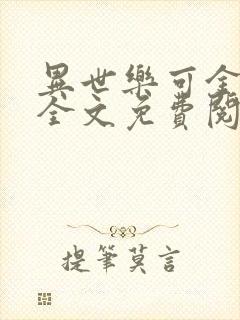 異世樂可全
全文免費閱
提筆莫言